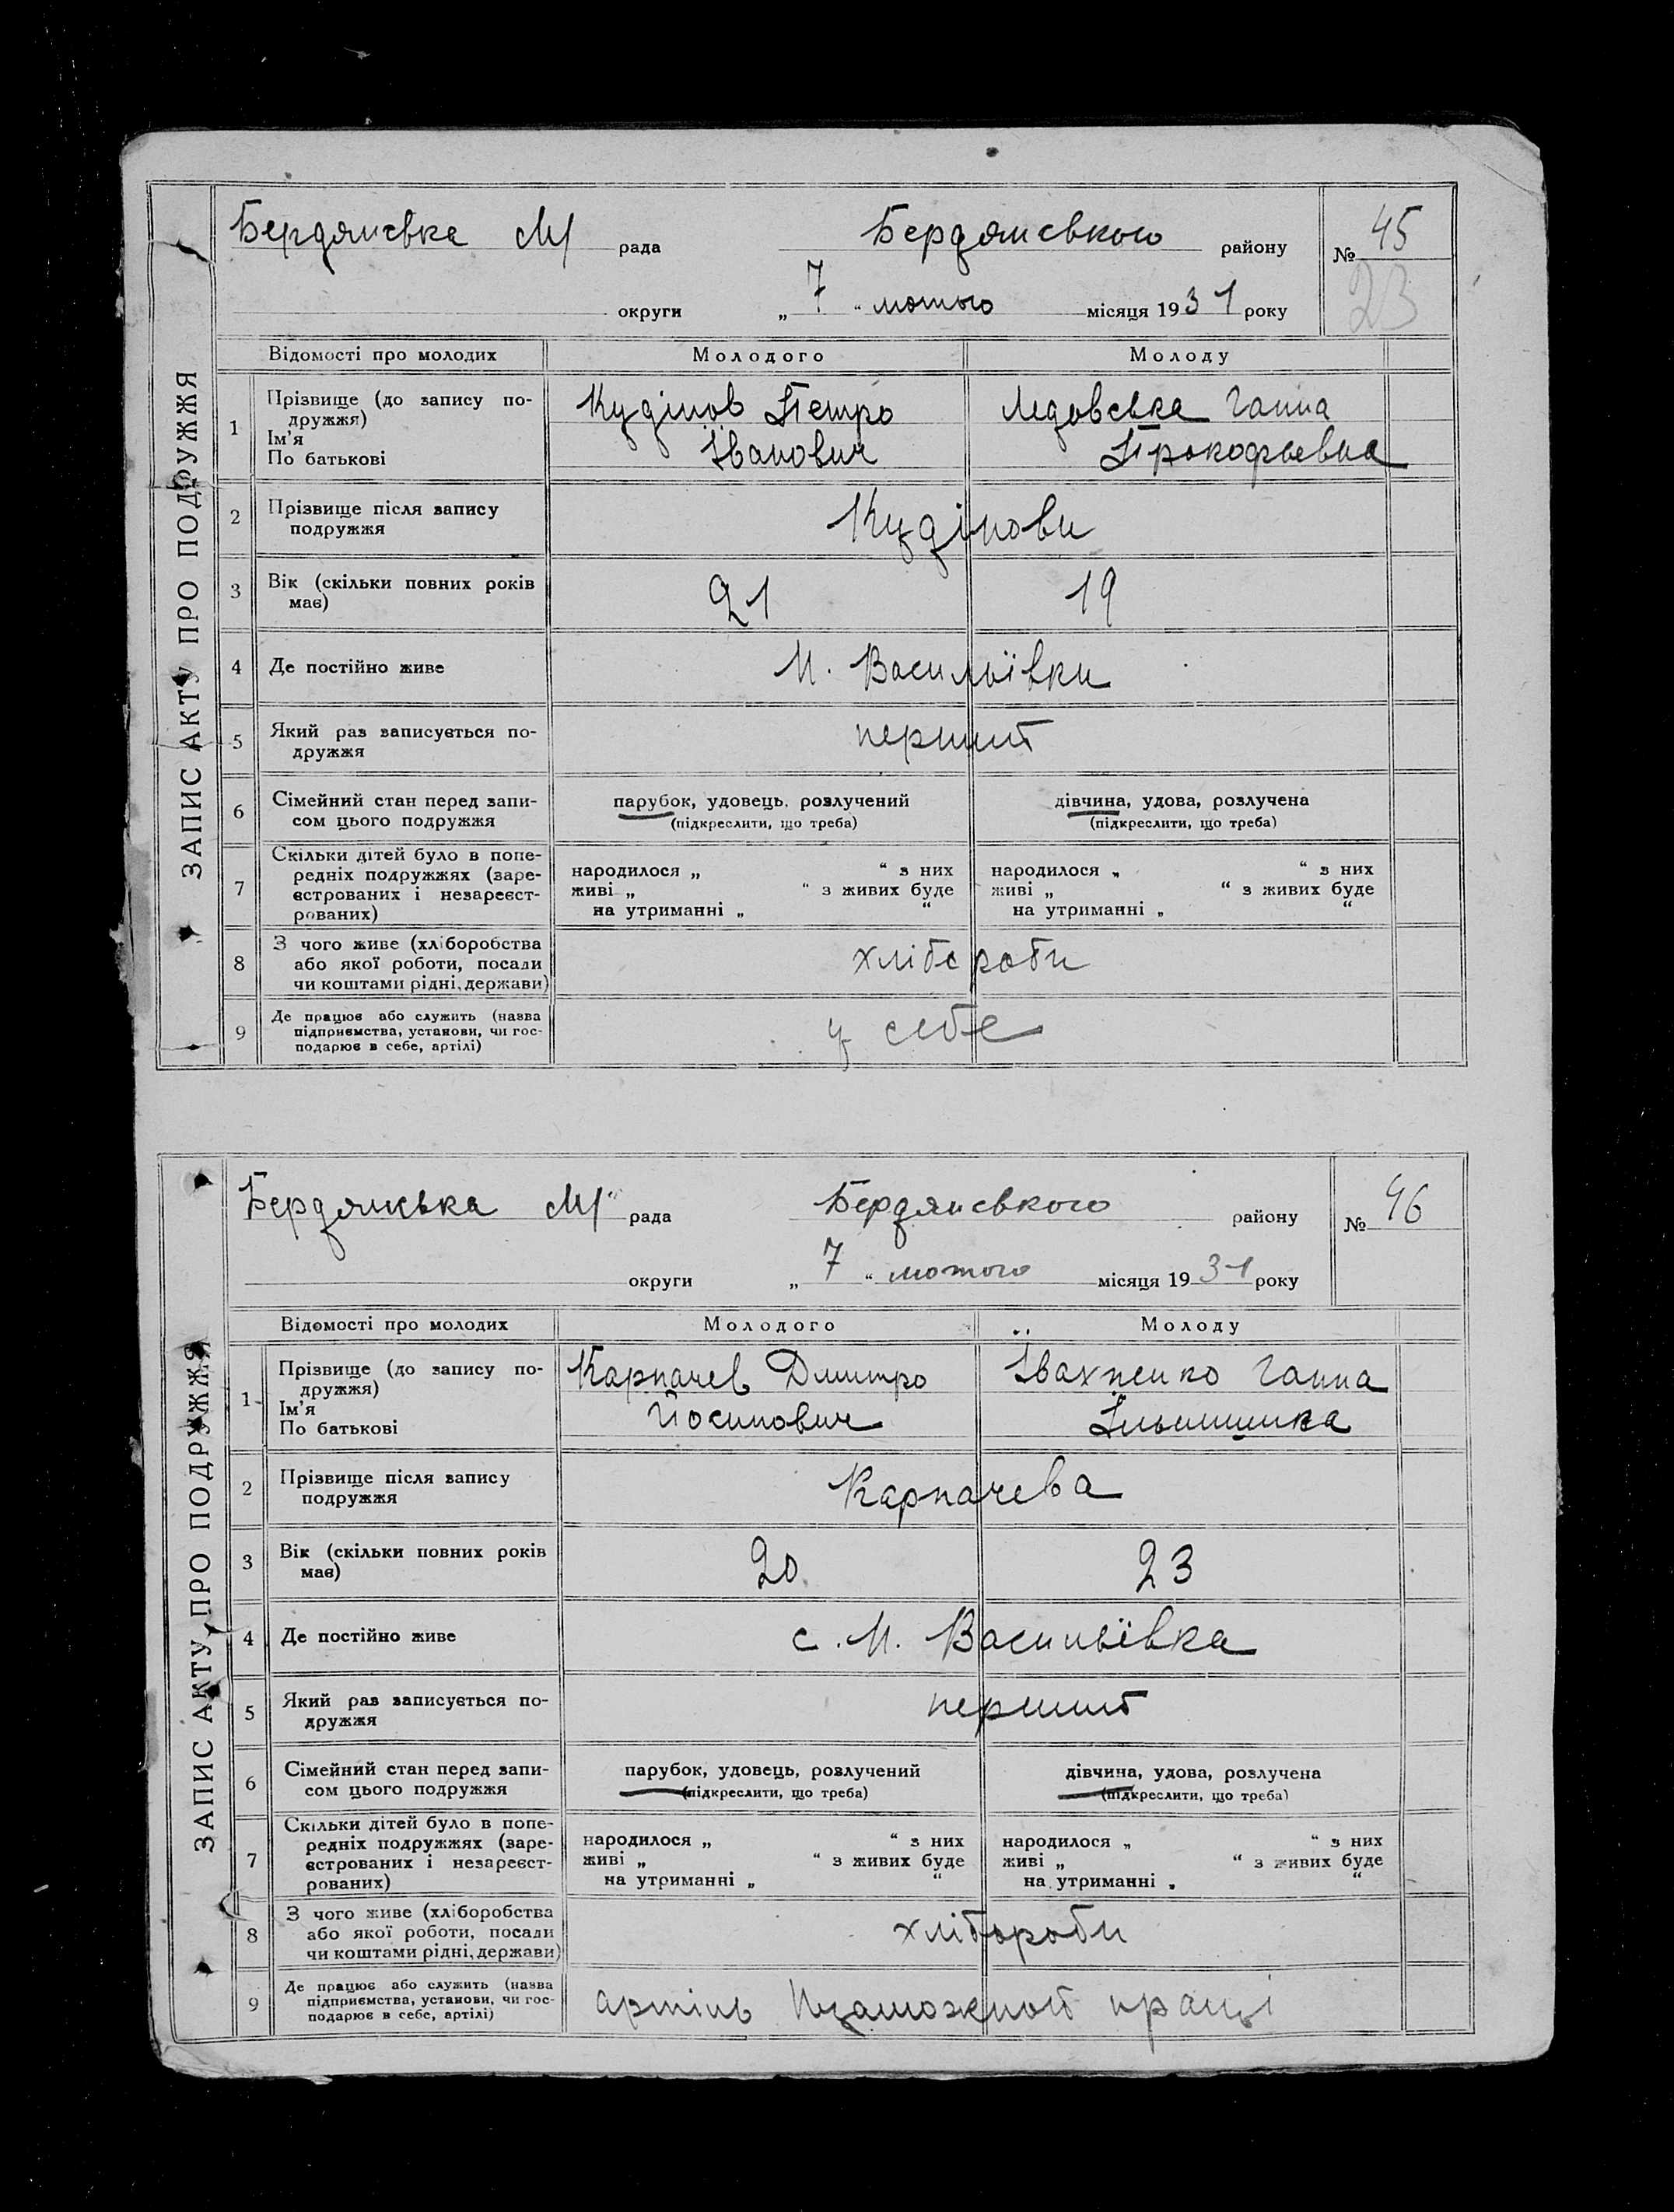 ЗАПИС АКТУ ПРО ПОДРУЖЖЯ
Бердянська М/ рада Бердянського району № 45
округи „ 7 “ лютого місяця 1931 року 23
Відомості про молодих Молодого Молоду
1 Прізвище (до запису по-
дружжя)
Ім'я
По батькові
Кудінов Петро
Іванович
Ледовська Ганна
Прокофьевна
2 Прізвище після запису
подружжя
Кудінови
3 Вік (скільки повних років
має)
21 19
4 Де постійно живе М. Васильївки
5 Який раз записується по-
дружжя
перший
6 Сімейний стан перед запи-
сом цього подружжя
парубок, удовець, розлучений
(підкреслити, що треба)
дівчина, удова, розлучена
(підкреслити, що треба)
7 Скільки дітей було в попе-
редніх подружжях (заре-
єстрованих і незареєст-
рованих)
народилося „ “ з них
живі „ “ з живих буде
на утриманні „ “
народилося „ “ з них
живі „ “ з живих буде
на утриманні „ “
8 З чого живе (хліборобства
або якої роботи, посади
чи коштами рідні, держави)
хлібороби
9 Де працює або служить (назва
підприємства, установи, чи гос-
подарює в себе, артілі)
у себе
ЗАПИС АКТУ ПРО ПОДРУЖЖЯ
Бердянська М/ рада Бердянського району № 46
округи „ 7 “ лютого місяця 1931 року
Відомості про молодих Молодого Молоду
1 Прізвище (до запису по-
дружжя)
Ім'я
По батькові
Карпачев Дмитро
Йосипович
Івахненко Ганна
2 Прізвище після запису
подружжя
Карпачева
3 Вік (скільки повних років
має)
20 23
4 Де постійно живе с. М. Васильївка
5 Який раз записується по-
дружжя
перший
6 Сімейний стан перед запи-
сом цього подружжя
парубок, удовець, розлучений
(підкреслити, що треба)
дівчина, удова, розлучена
(підкреслити, що треба)
7 Скільки дітей було в попе-
редніх подружжях (заре-
єстрованих і незареєст-
рованих)
народилося „ “ з них
живі „ “ з живих буде
на утриманні „ “
народилося „ “ з них
живі „ “ з живих буде
на утриманні „ “
8 З чого живе (хліборобства
або якої роботи, посади
чи коштами рідні, держави)
хлібороби
9 Де працює або служить (назва
підприємства, установи, чи гос-
подарює в себе, артілі)
артіль праці